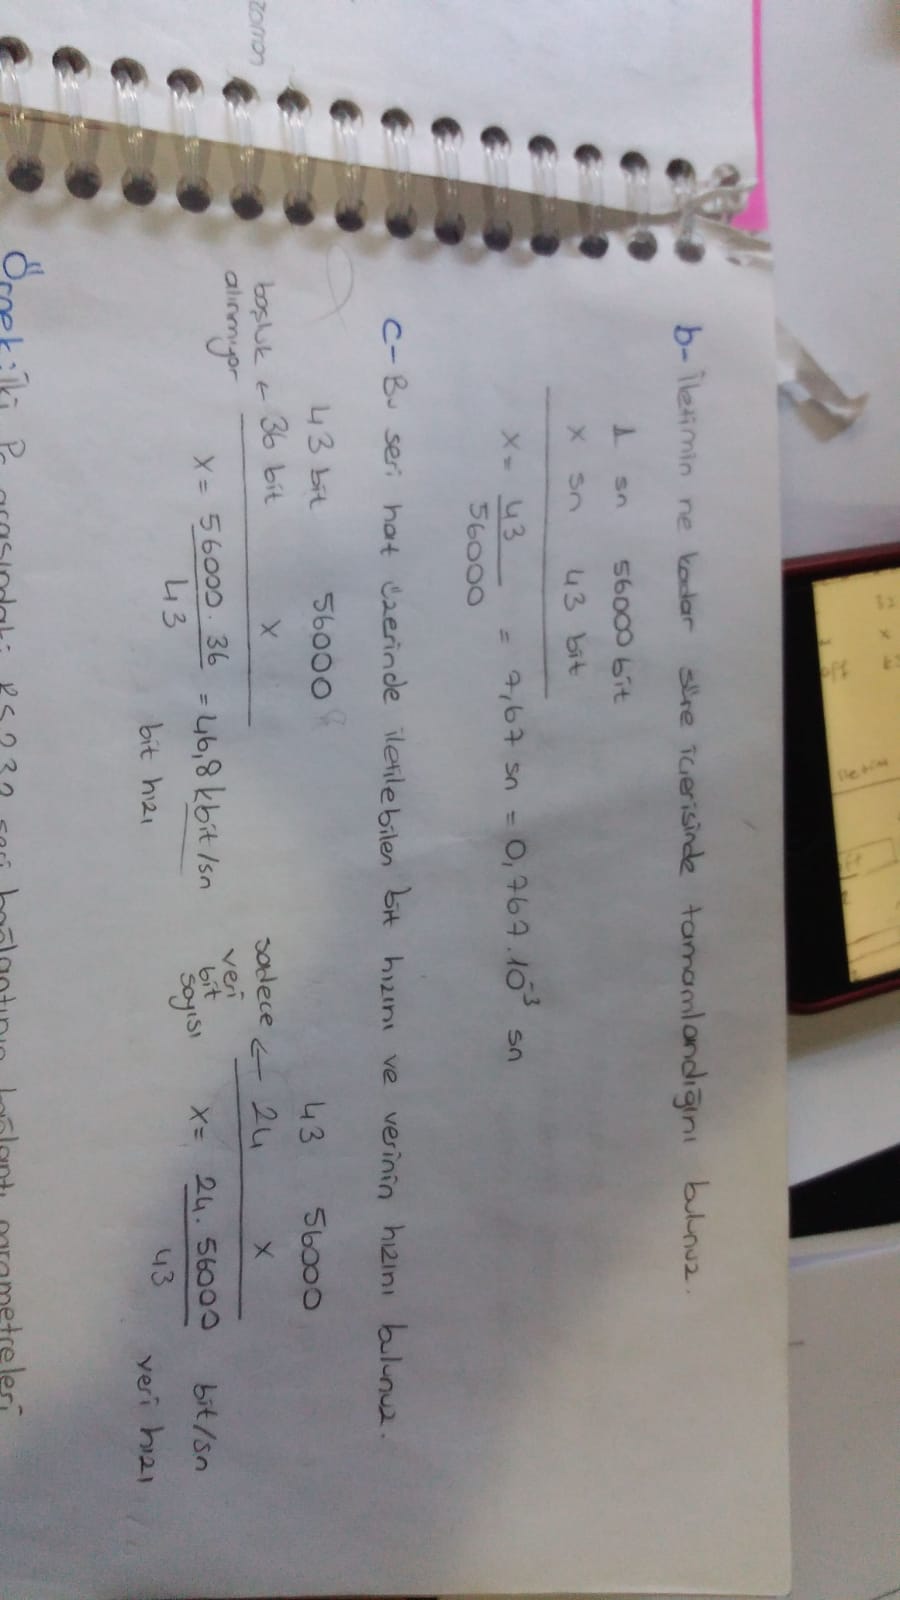 b- İletimin ne kadar süre içerisinde tamamlandığını bulunuz.
1 sn 56000 bit
x sn 43 bit
x = 43 / 56000 = 7,67 sn = 0,767.10⁻³ sn
c- Bu seri hat üzerinde iletilebilen bit hızını ve verinin hızını bulunuz.
43 bit 56000
boşluk alınmıyor ← 36 bit x
x = 56000.36 / 43 = 46,8 kbit/sn
bit hızı
43 56000
sadece veri bit sayısı ← 24 x
x = 24.56000 / 43 bit/sn
veri hızı
zaman
Örnek: İki Pc arasındaki RS232 seri bağlantının bağlantı parametreleri
iletim